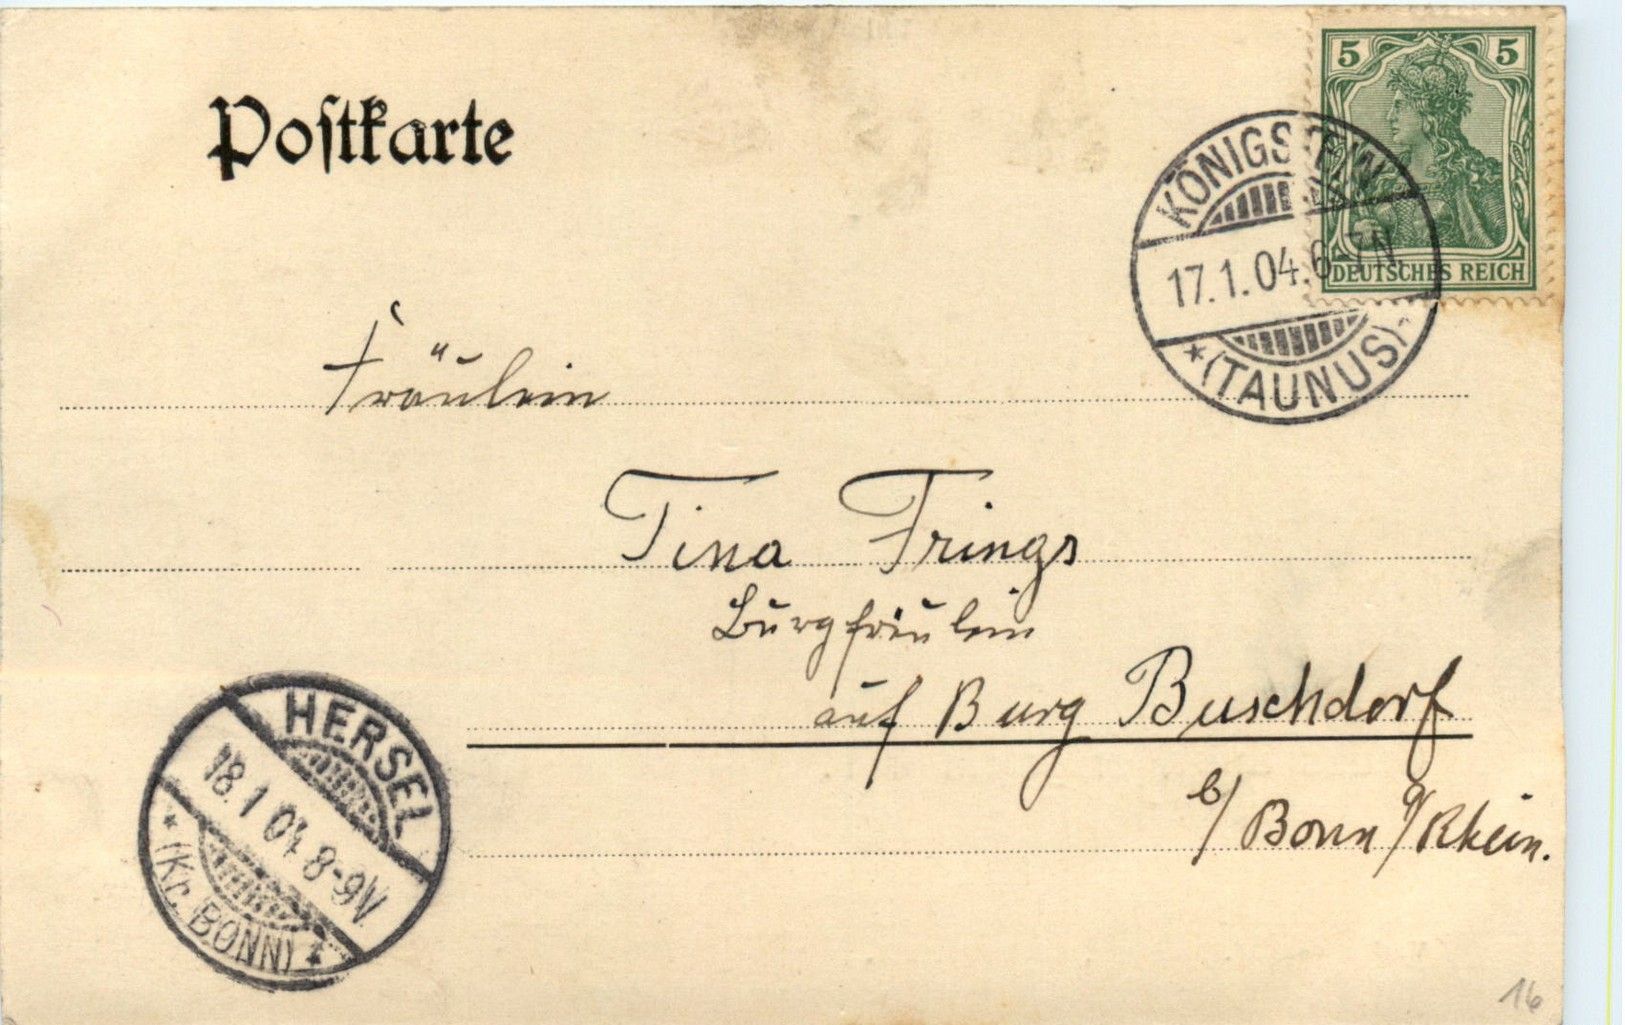 Postkarte
5 5
DEUTSCHES REICH
KÖNIGSTEIN
17.1.04. 6-7N.
* (TAUNUS) *
Fräulein
Tina Frings
Burgfräulein
auf Burg Buschdorf
b/ Bonn a/Rhein.
HERSEL
18.1 04 8-9V
* (Kr. BONN) *
16